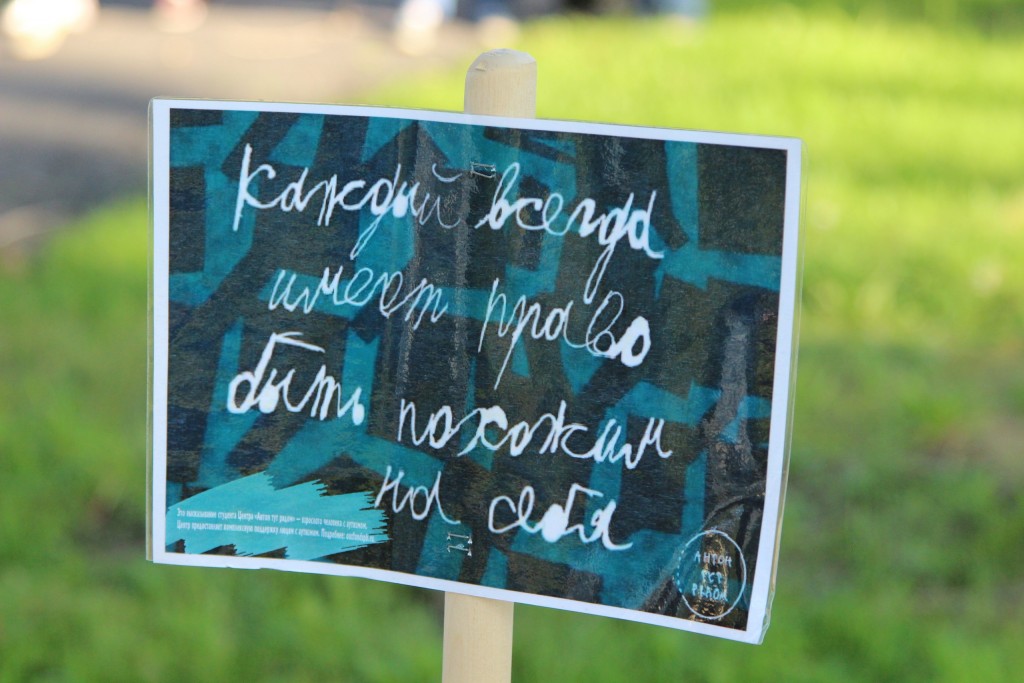 Каждый всегда
имеет право
быть похожим
на себя
Это высказывание студента Центра «Антон тут рядом» — взрослого человека с аутизмом.
Центр предоставляет комплексную поддержку людям с аутизмом. Подробнее:
АНТОН
ТУТ
РЯДОМ